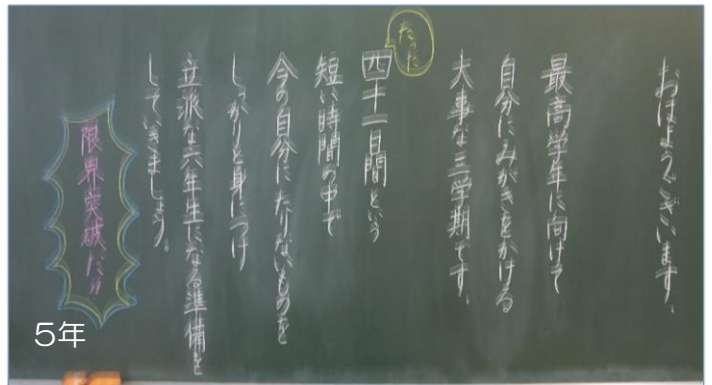 おはようございます。
最高学年に向けて
自分にみがきをかける
大事な三学期です。
たった
四十一日間という
短い時間の中で
今の自分にたりないものを
しっかりと身につけ
立派な六年生になる準備を
していきましょう。
限界突破だ!!
5年